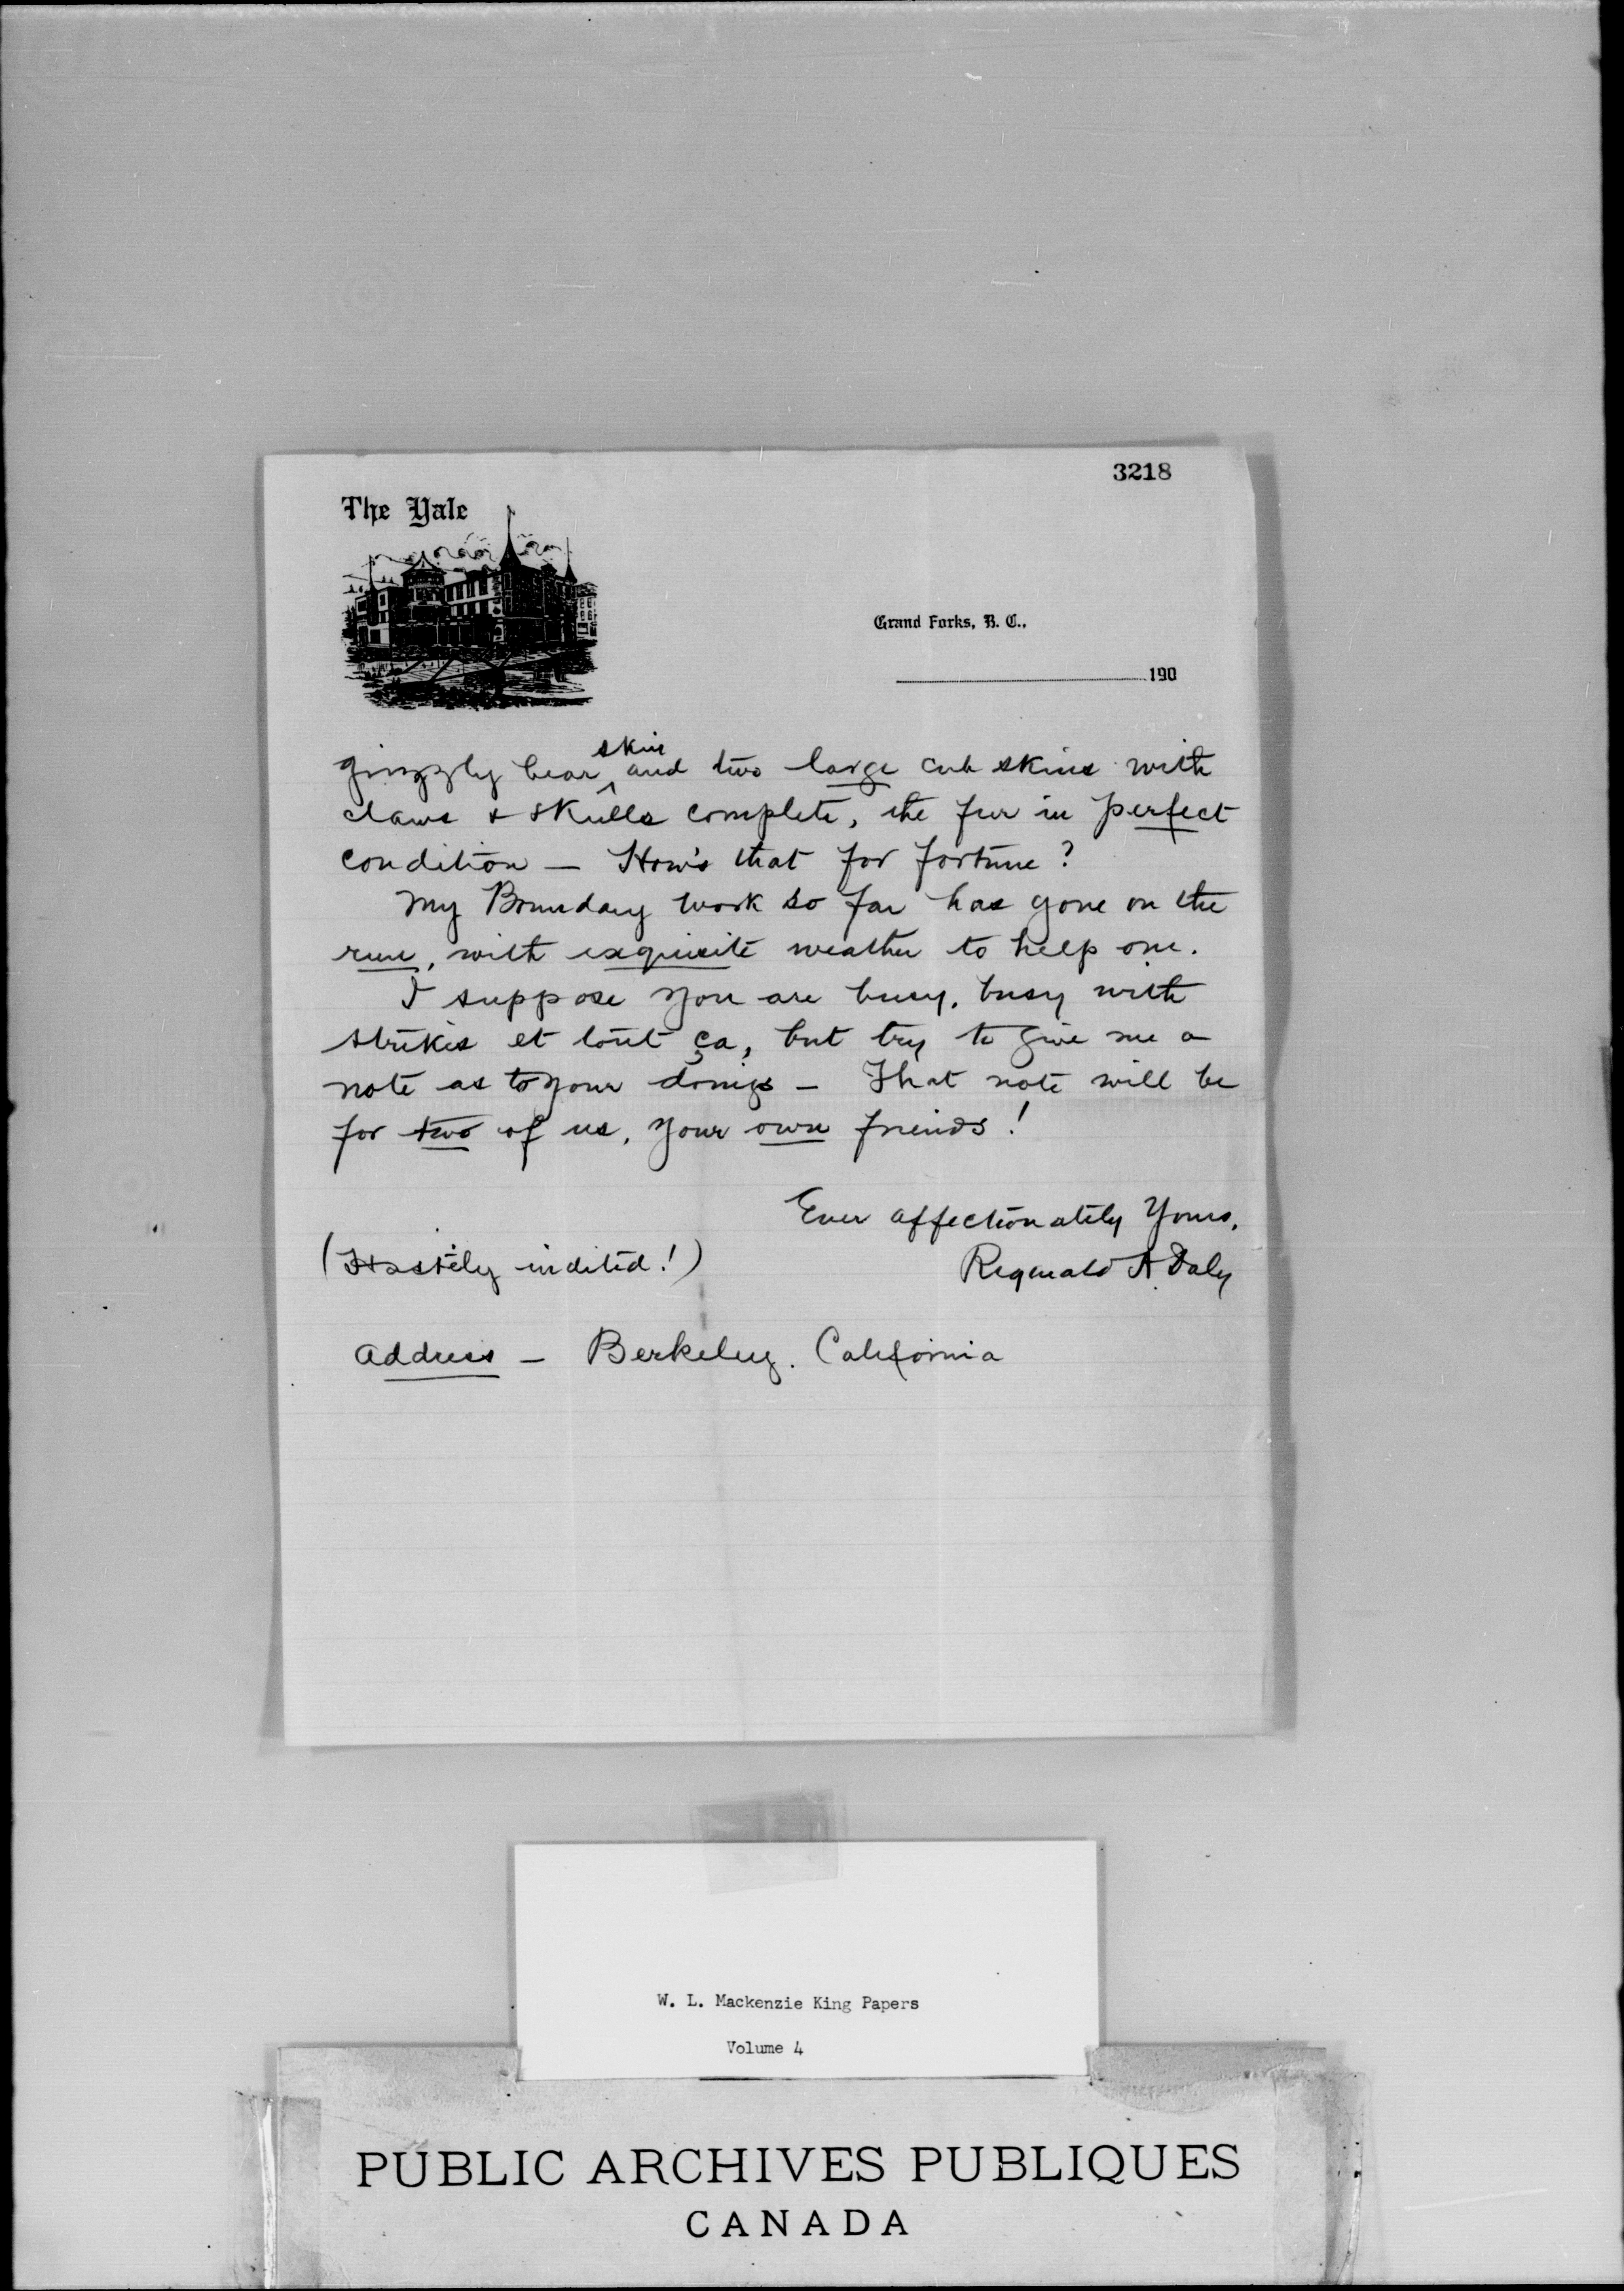 3218
The Yale
Grand Forks, B. C.,
190
grizzly bear skin and two large cub skins with
claws & skulls complete, the fur in perfect
condition — How's that for fortune?
My Boundary work so far has gone on the
run, with exquisite weather to help one.
I suppose you are busy, busy with
strikes et tout ça, but try to give me a
note as to your doings — That note will be
for two of us, your own friends!
Ever affectionately Yours,
(Hastily indited!)
Reginald A. Daly
Address — Berkeley. California
W. L. Mackenzie King Papers
Volume 4
PUBLIC ARCHIVES PUBLIQUES
CANADA